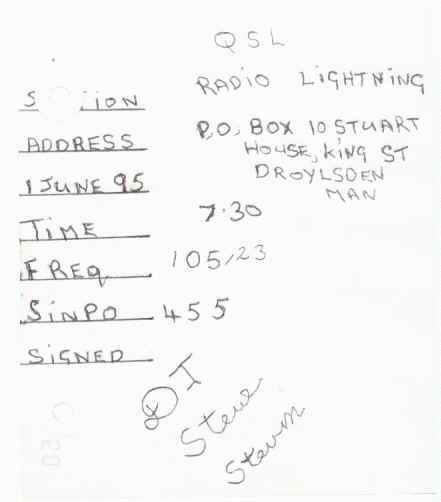 QSL
S iiON RADIO LiGHTNiNG
ADDRESS P.O, BOX 10 STUART
HOUSE, KiNG ST
DROYLSDEN
MAN
1 JUNE 95
TiME 7.30
FREQ 105,23
SiNPO 455
SiGNED
DJ
Steve
Storm